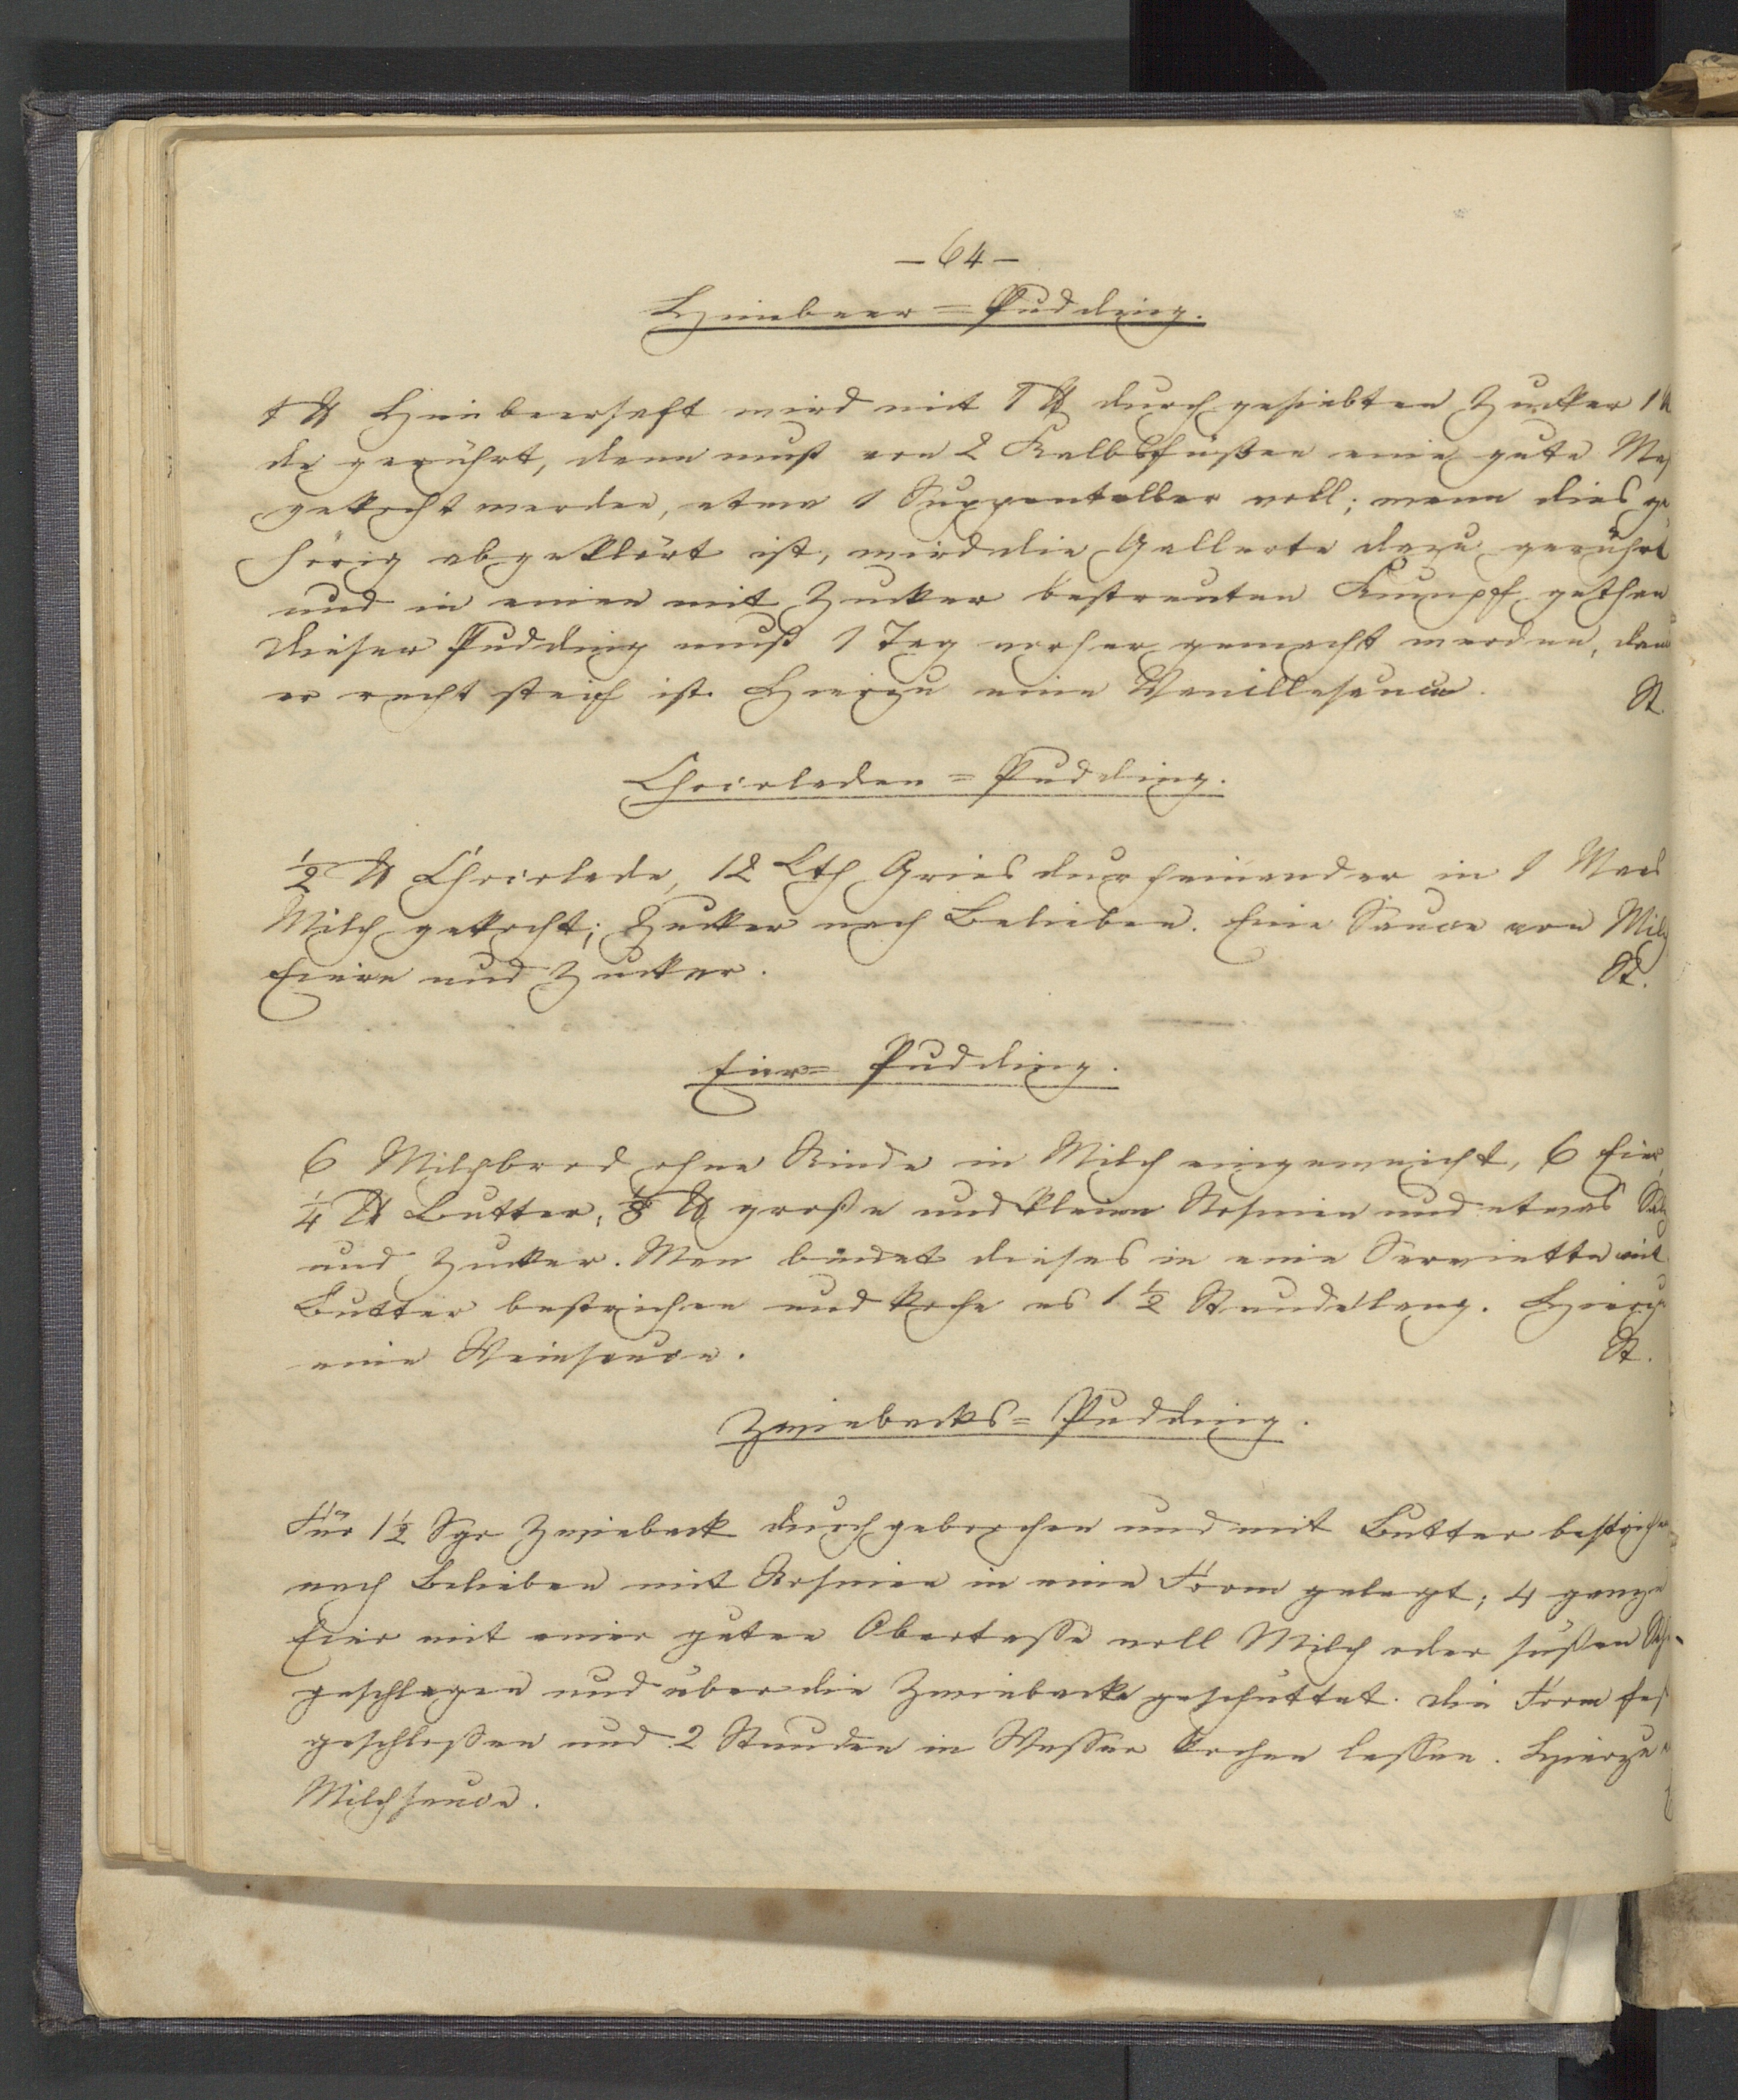 — 64 —
Himbeer=Pudding.
1 ℔ Himbeersaft wird mit 1 ℔ durchgesiebten Zucker 1
de gerührt, dann muß von 2 Kalbsfüßen eine gute
gekocht werden, etwa 1 Suppenteller voll; wenn dies ge
hörig abgeklärt ist, wird die Gallerte dazu gerührt
und in einen mit Zucker bestreuten Kumpf gethan
Dieser Pudding muß 1 Tag vorher gemacht werden,
er recht steif ist. Hierzu eine Vanillesauce.
St.
Chocoladen=Pudding.
½ ℔ Chocolade, 12 Lth Gries durcheinander in 1 Maas
Milch gekocht; Zucker nach Belieben. Eine Sauce von Milch
Eiern und Zucker.
St.
Eier=Pudding.
6 Milchbrod ohne Rinde in Milch eingeweicht, 6 Eier,
¼ ℔ Butter, ⅛ ℔ große und kleine Rosinen und etwas Salz
und Zucker. Man bindet dieses in eine Serviette mit
Butter bestrichen und koche es 1 ½ Stunde lang. Hierzu
eine Weinsauce.
St.
Zwiebacks=Pudding.
Für 1 ½ Sgr Zwieback durchgebrochen und mit Butter bestrichen
nach Belieben mit Rosinen in eine Form gelegt; 4 ganze
Eier mit einer guten Obertasse voll Milch oder süßen
geschlagen und über die Zwiebacke geschüttet. Die Form fest
geschlossen und 2 Stunden in Wasser kochen lassen. Hierzu
Milchsauce.